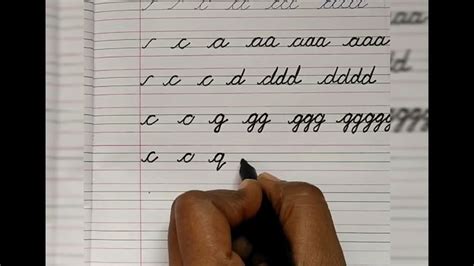 c a aa aaa aaa
c c d ddd dddd
c o g gg ggg gggg
c o q